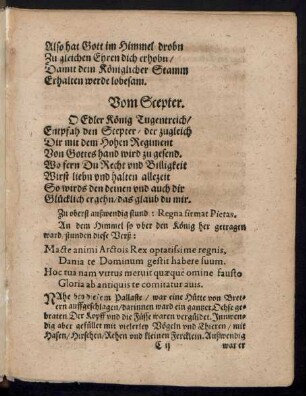 Also hat Gott im Himmel drobn
Zu gleichen Ehren dich erhobn/
Damit dem Königlicher Stamm
Erhalten werde lobesam.
Vom Scepter.
O Edler König Tugentreich/
Entpfah den Scepter/ der zugleich
Dir mit dem Hohen Regiment
Von Gottes hand wird zu gesend.
Wo fern Du Recht vnd Billigkeit
Wirst liebn vnd halten allezeit
So wirds den deinen vnd auch dir
Glücklich ergehn/ das glaub du mir.
Zu oberst außwendig stund: Regna firmat Pietas.
An dem Himmel so vber den König her getragen
ward/ stunden diese Verß:
Macte animi Arctois Rex optatissime regnis,
Dania te Dominum gestit habere suum.
Hoc tua nam virtus meruit quæquè omine fausto
Gloria ab antiquis te comitatur avis.
NAhe bey diesem Pallaste/ war eine Hütte von Bret-
tern auffgeschlagen/ darinnen ward ein gantzer Ochse ge-
braten Der Kopff vnd die Füsse waren vergüldet. Innwen-
dig aber gefüllet mit vielerley Vögeln vnd Thieren/ mit
Hasen/ Hirschen/ Rehen vnd kleinen Fercklein. Außwendig
C ij war er